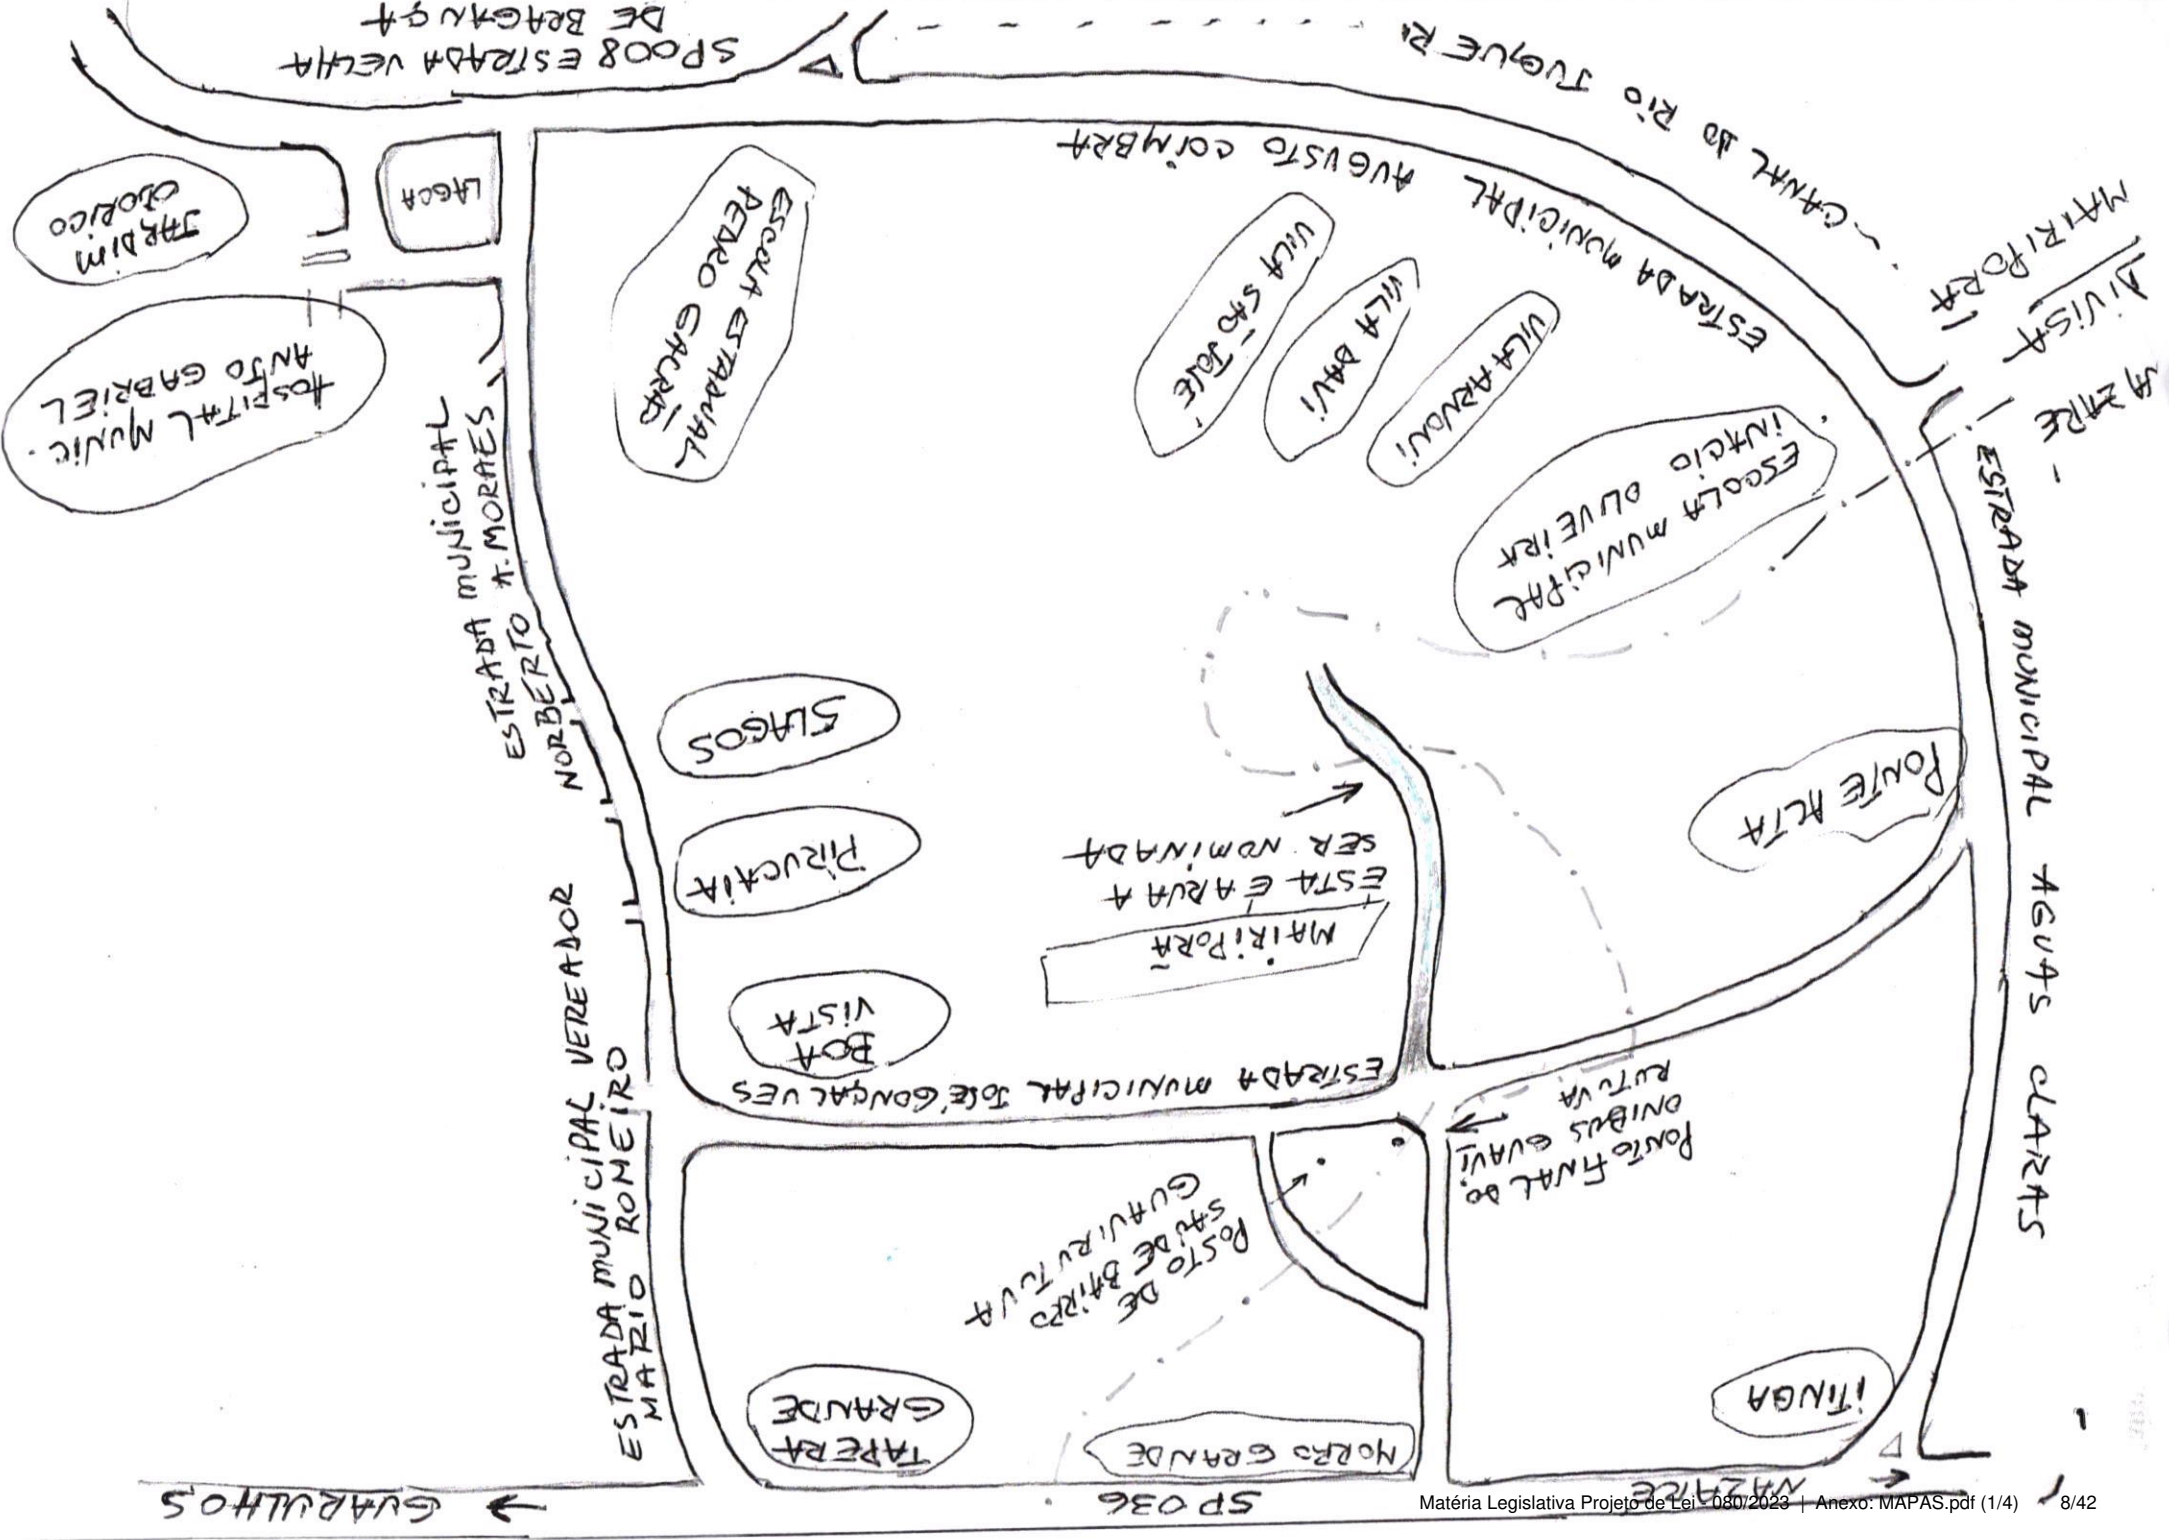 SP008 ESTRADA VELHA
DE BRAGANÇA
CANAL DO RIO JUQUERI
ESTRADA MUNICIPAL AUGUSTO COIMBRA
MAIRIPORÃ
DIVISA
LAGOA
JARDIM
ODORICO
HOSPITAL MUNIC.
ANJO GABRIEL
ESCOLA ESTADUAL
PEDRO GALRÃO
VILA SÃO JOSÉ
VILA DAVI
VILA ARNONI
ESCOLA MUNICIPAL
INACIO OLIVEIRA
ESTRADA MUNICIPAL
NORBERTO A. MORAES
ESTRADA MUNICIPAL AGUAS CLARAS
5LAGOS
PIRUCAIA
BOA
VISTA
PONTE ALTA
MAIRIPORÃ
ESTA É A RUA A
SER NOMINADA
ESTRADA MUNICIPAL JOSÉ GONÇALVES
ESTRADA MUNICIPAL VEREADOR
MARIO ROMEIRO
PONTO FINAL DO
ONIBUS GUAVI
RUTUVA
POSTO DE
SAÚDE BAIRRO
GUAVIRUTUVA
TAPERA
GRANDE
MORRO GRANDE
ITINGA
GUARULHOS
SP 036
NAZARE
Matéria Legislativa Projeto de Lei 080/2023 | Anexo: MAPAS.pdf (1/4) 8/42